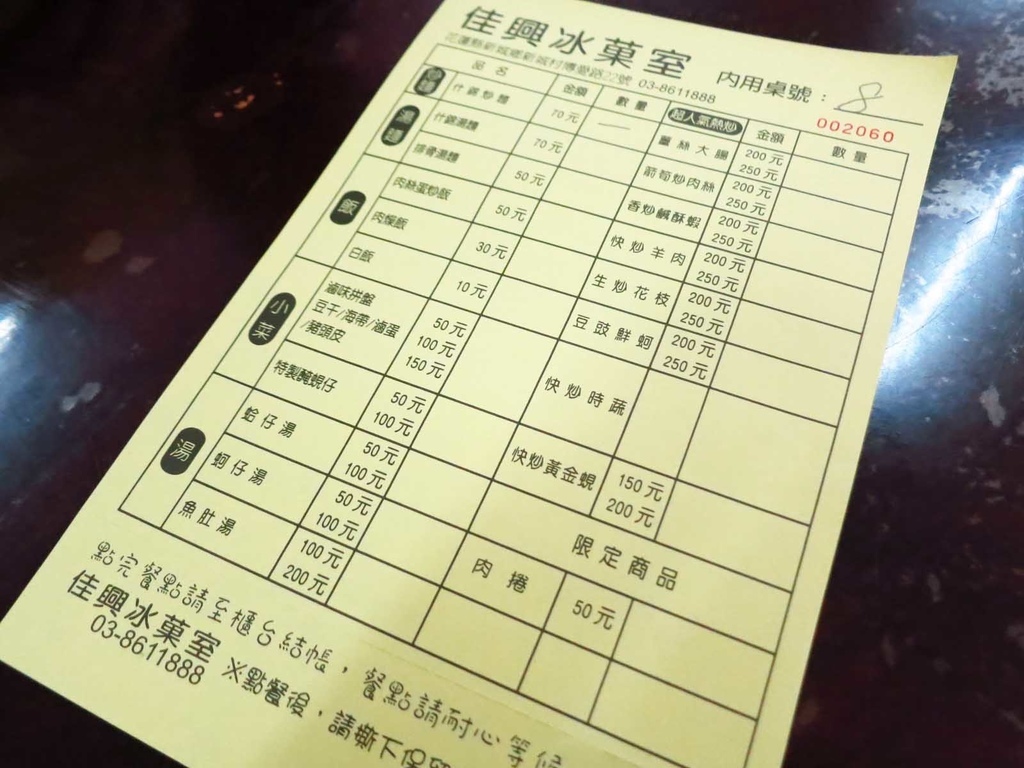 佳興冰菓室 內用桌號：8
花蓮縣新城鄉新城村博愛路22號 03-8611888
002060
品名 金額 數量 超人氣熱炒 金額 數量
什錦炒麵 70元
湯麵
什錦湯麵 70元
排骨湯麵 50元
飯
肉絲蛋炒飯 50元
肉燥飯 30元
白飯 10元
小菜
滷味拼盤 50元
豆干/海帶/滷蛋 100元
/豬頭皮 150元
特製醃蜆仔 50元 100元
湯
蛤仔湯 50元 100元
蚵仔湯 50元 100元
魚肚湯 100元 200元
薑絲大腸 200元 250元
箭筍炒肉絲 200元 250元
香炒鹹酥蝦 200元 250元
快炒羊肉 200元 250元
生炒花枝 200元 250元
豆豉鮮蚵 200元 250元
快炒時蔬
快炒黃金蜆 150元 200元
限定商品
肉捲 50元
點完餐點請至櫃台結帳，餐點請耐心等候
佳興冰菓室
03-8611888
※點餐後，請撕下保留